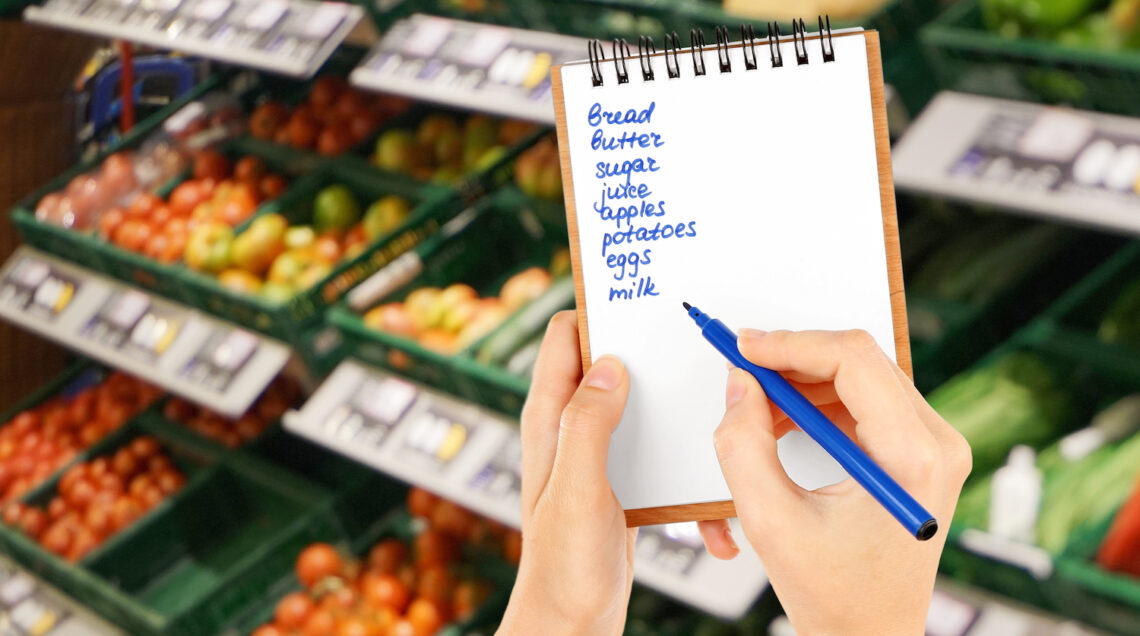 Bread
butter
sugar
juice
apples
potatoes
eggs
milk